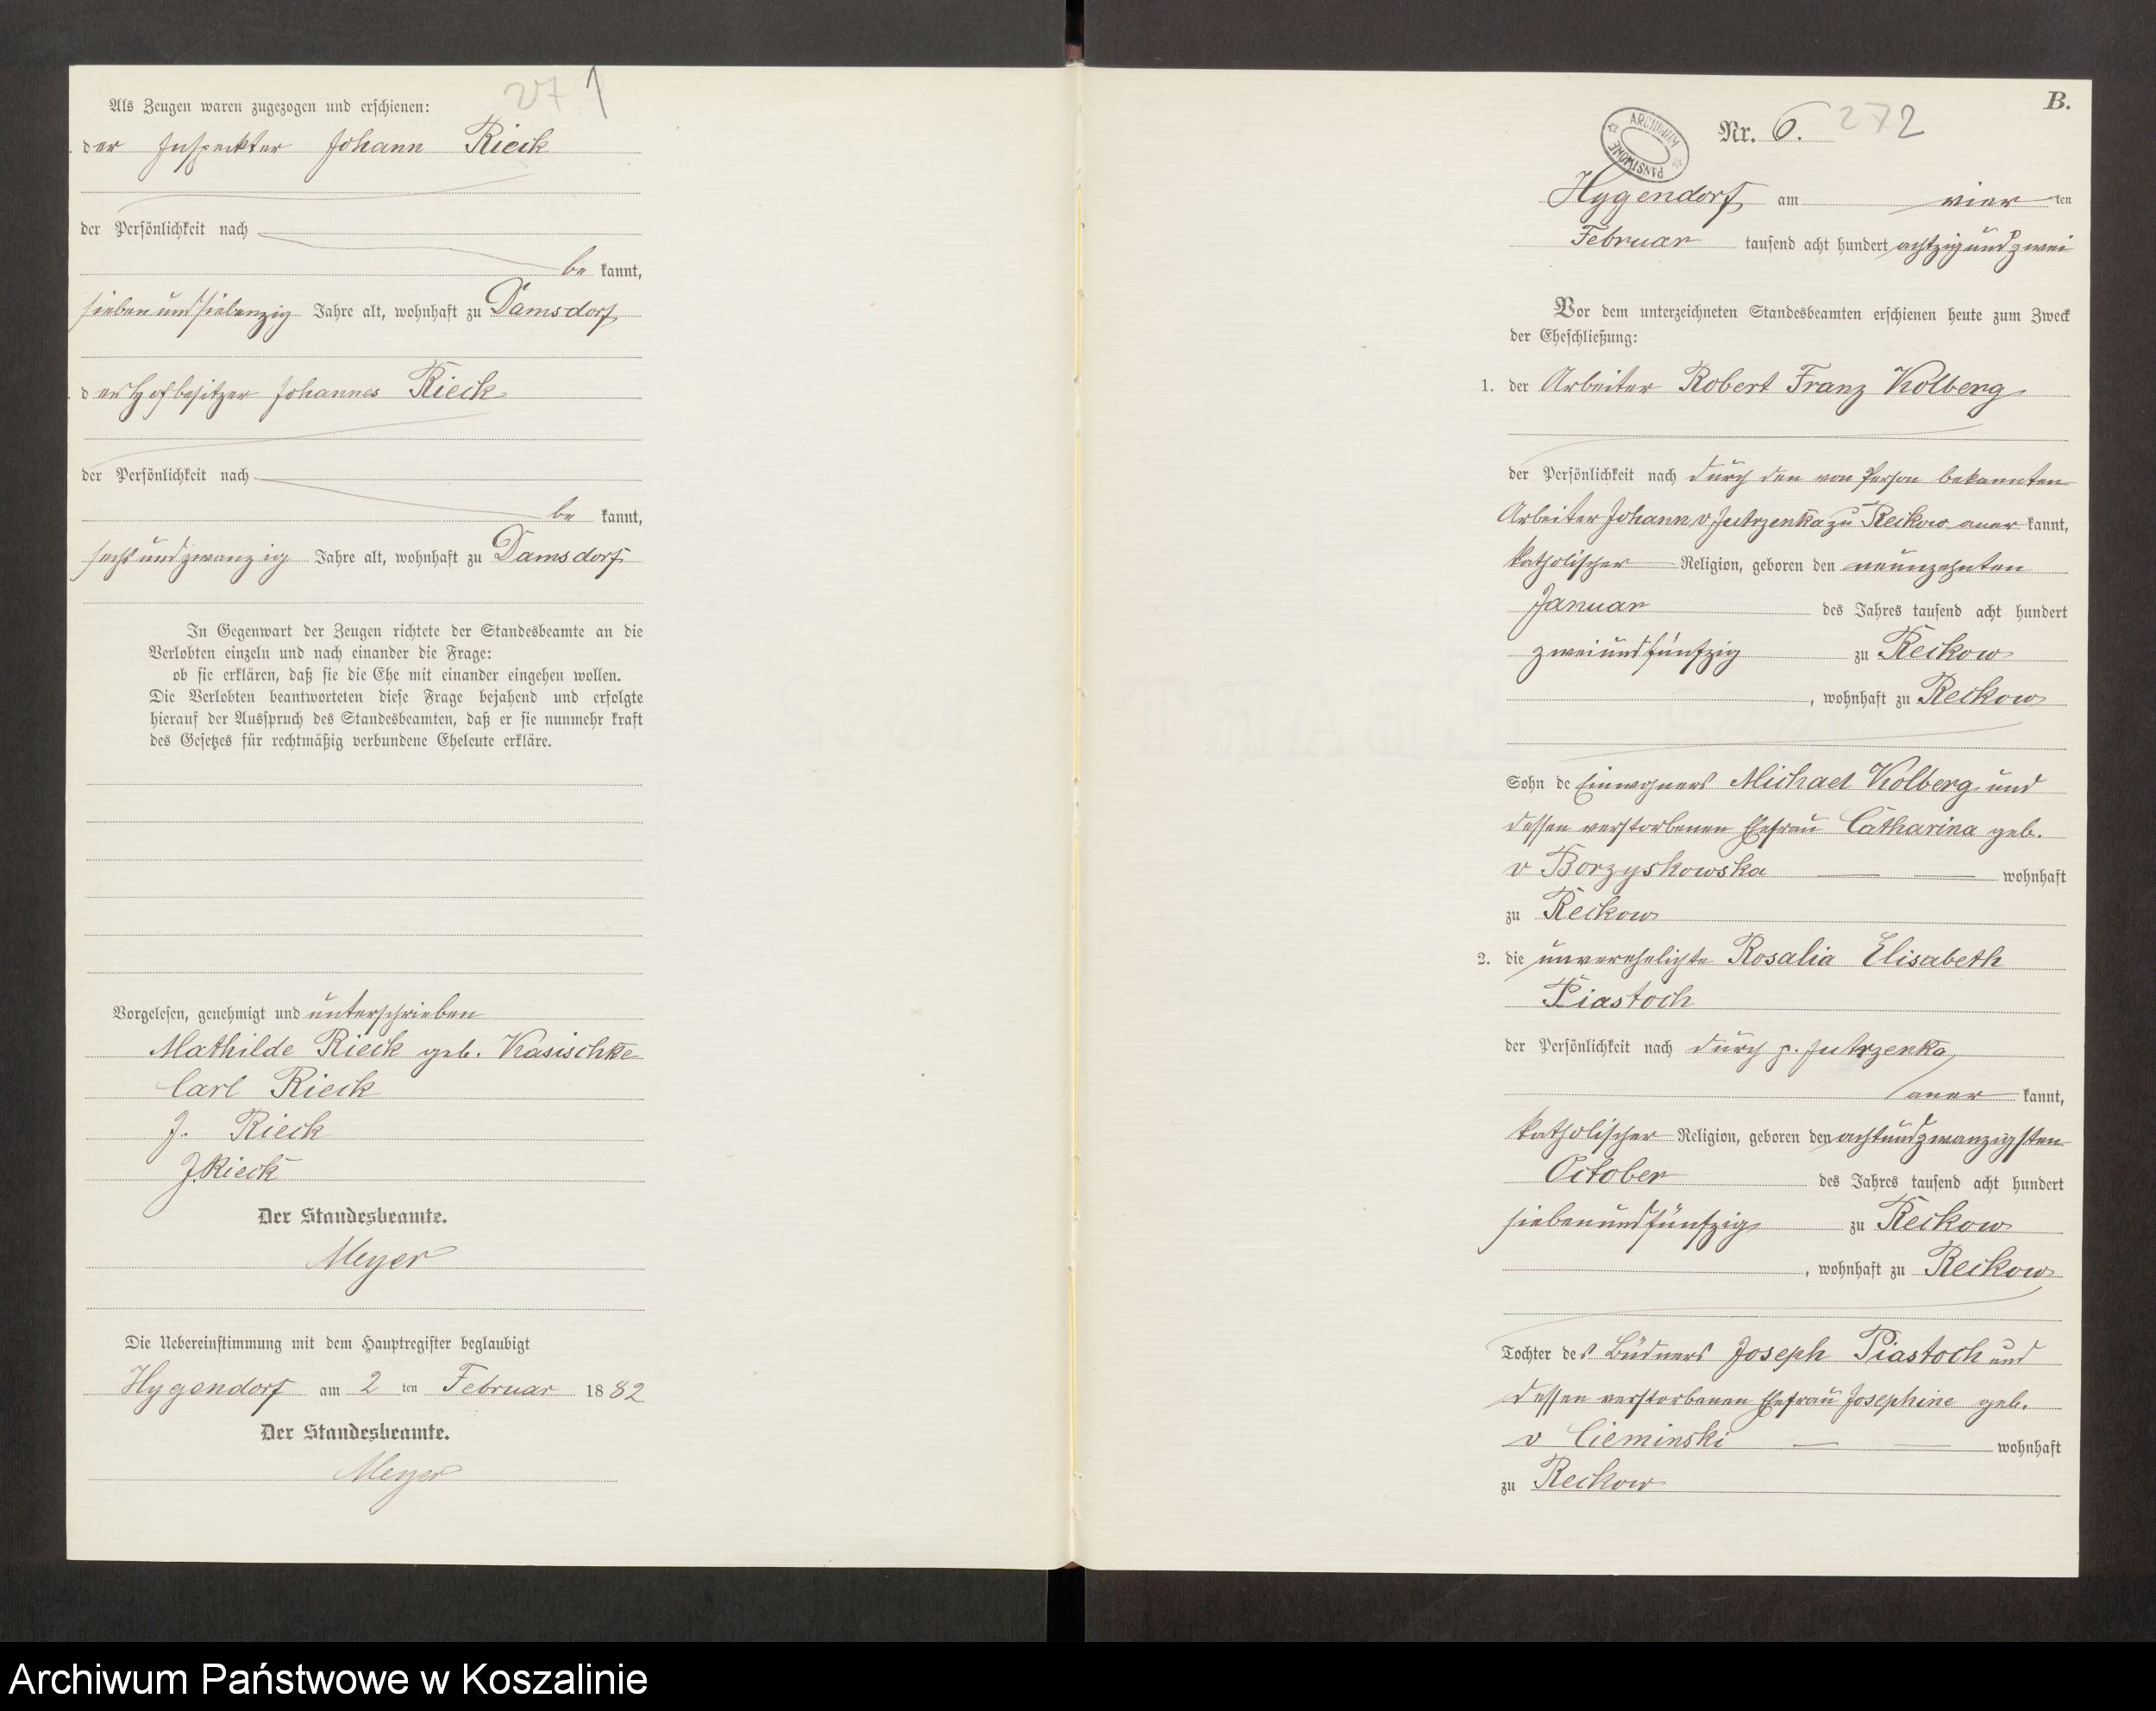 271
Als Zeugen waren zugezogen und erschienen:
der Inspekter Johann Rieck
der Persönlichkeit nach
be kannt,
sieben und siebenzig Jahre alt, wohnhaft zu Damsdorf
der Hofbesitzer Johannes Rieck
der Persönlichkeit nach
be kannt,
sechs und zwanzig Jahre alt, wohnhaft zu Damsdorf
In Gegenwart der Zeugen richtete der Standesbeamte an die
Verlobten einzeln und nach einander die Frage:
ob sie erklären, daß sie die Ehe mit einander eingehen wollen.
Die Verlobten beantworteten diese Frage bejahend und erfolgte
hierauf der Ausspruch des Standesbeamten, daß er sie nunmehr kraft
des Gesetzes für rechtmäßig verbundene Eheleute erkläre.
Vorgelesen, genehmigt und unterschrieben
Mathilde Rieck geb. Kasischke
Carl Rieck
J. Rieck
J. Rieck
Der Standesbeamte.
Meyer
Die Uebereinstimmung mit dem Hauptregister beglaubigt
Hygendorf am 2 ten Februar 1882
Der Standesbeamte.
Meyer
B.
ARCHIWUM PAŃSTWOWE
Nr. 6. 272
Hygendorf am vier ten
Februar tausend acht hundert achtzig und zwei
Vor dem unterzeichneten Standesbeamten erschienen heute zum Zweck
der Eheschließung:
1. der Arbeiter Robert Franz Kolberg
der Persönlichkeit nach durch den von Person bekannten
Arbeiter Johann v Jutrzenka zu Reckow aner kannt,
katholischer Religion, geboren den neunzehnten
Januar des Jahres tausend acht hundert
zwei und fünfzig zu Reckow
, wohnhaft zu Reckow
Sohn de Einwohners Michael Kolberg und
dessen verstorbenen Ehefrau Catharina geb.
v Borzyskowska wohnhaft
zu Reckow
2. die unverehelichte Rosalia Elisabeth
Piastoch
der Persönlichkeit nach durch p. Jutrzenka
aner kannt,
katholischer Religion, geboren den acht und zwanzigsten
October des Jahres tausend acht hundert
sieben und fünfzig zu Reckow
, wohnhaft zu Reckow
Tochter des Büdners Joseph Piastoch und
dessen verstorbenen Ehefrau Josephine geb.
v Cieminski wohnhaft
zu Reckow
Archiwum Państwowe w Koszalinie